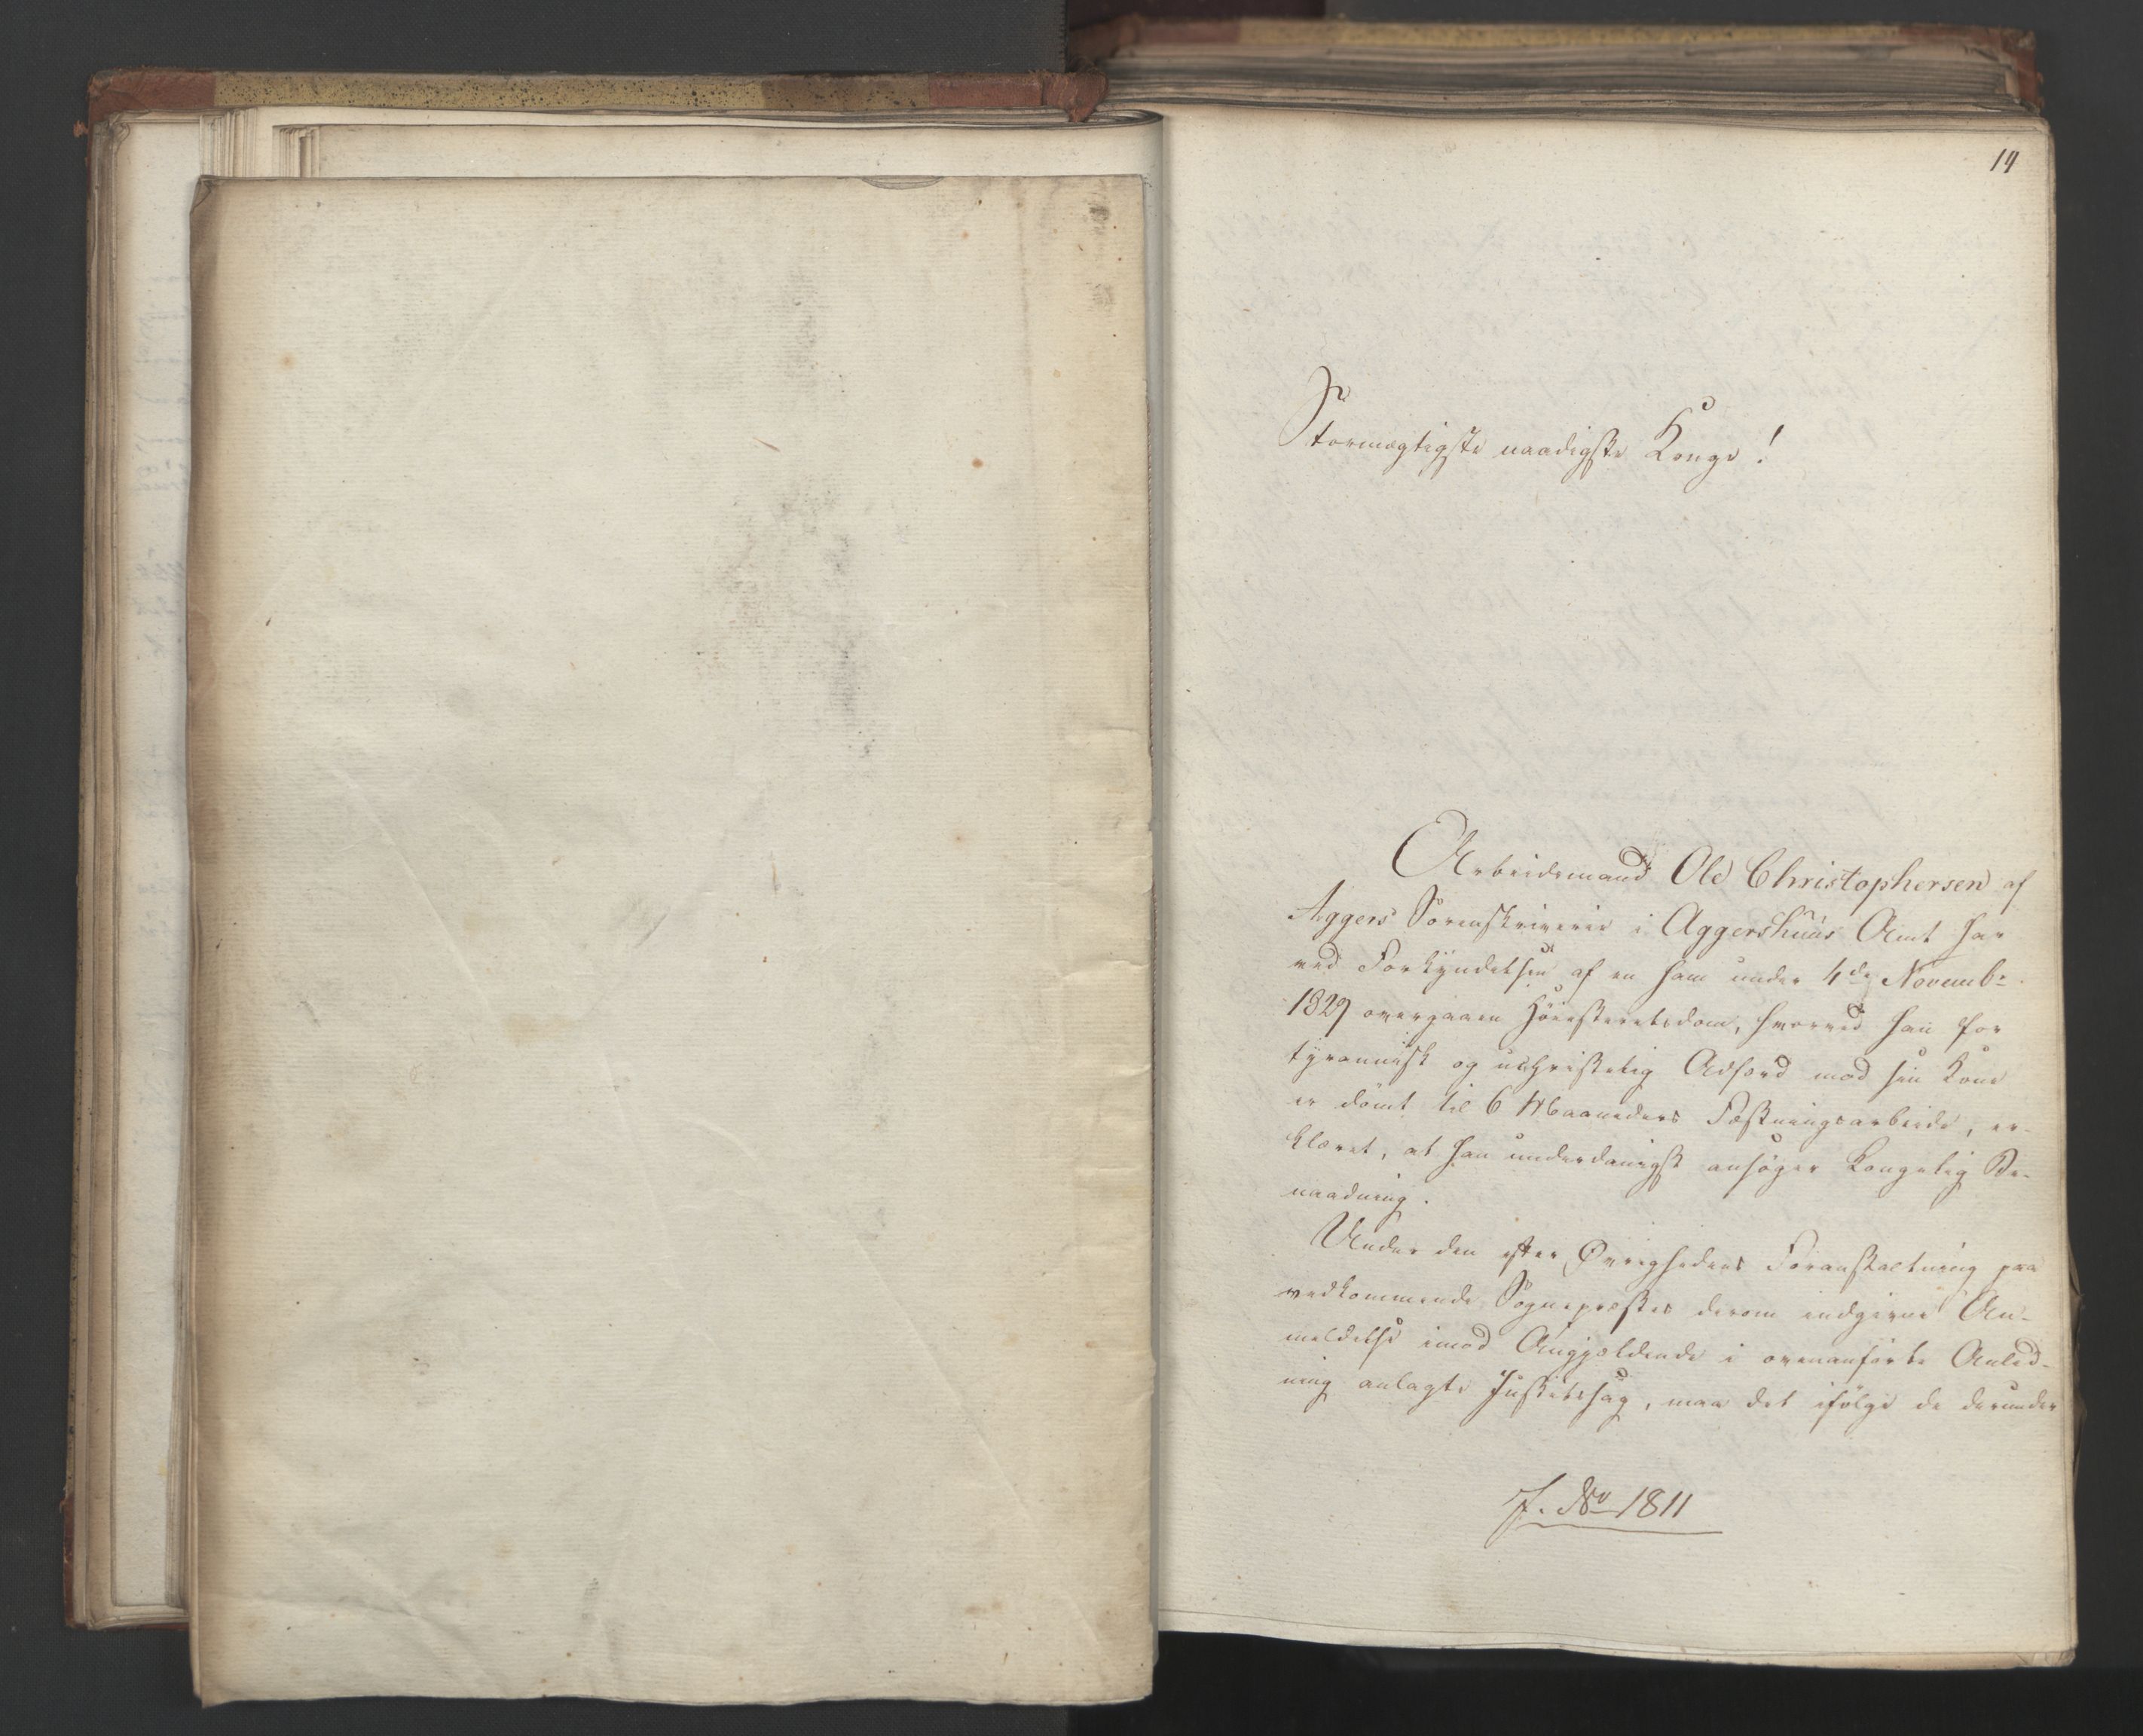 14
Stormægtigste naadigste Konge!
Arbeidsmand Ole Christophersen af
Aggers Sorenskriverie i Aggershuus Amt har
ved Forkyndelsen af en ham under 4de Novembr.
1829 overgaaen Høiesteretsdom, hvorved han for
tyrannisk og uchristelig Adfærd mod sin Kone
er dømt til 6 Maaneders Fæstningsarbeide, er-
klæret, at han underdanigst ansøger Kongelig Be-
naadning.
Under den efter Øvrighedens Foranstaltning paa
vedkommende Sognepræstes derom indgivne An-
meldelse imod Angjældende i ovenanførte Anled-
ning anlagte Justitssag, maa det ifølge de derunder
J. No 1811